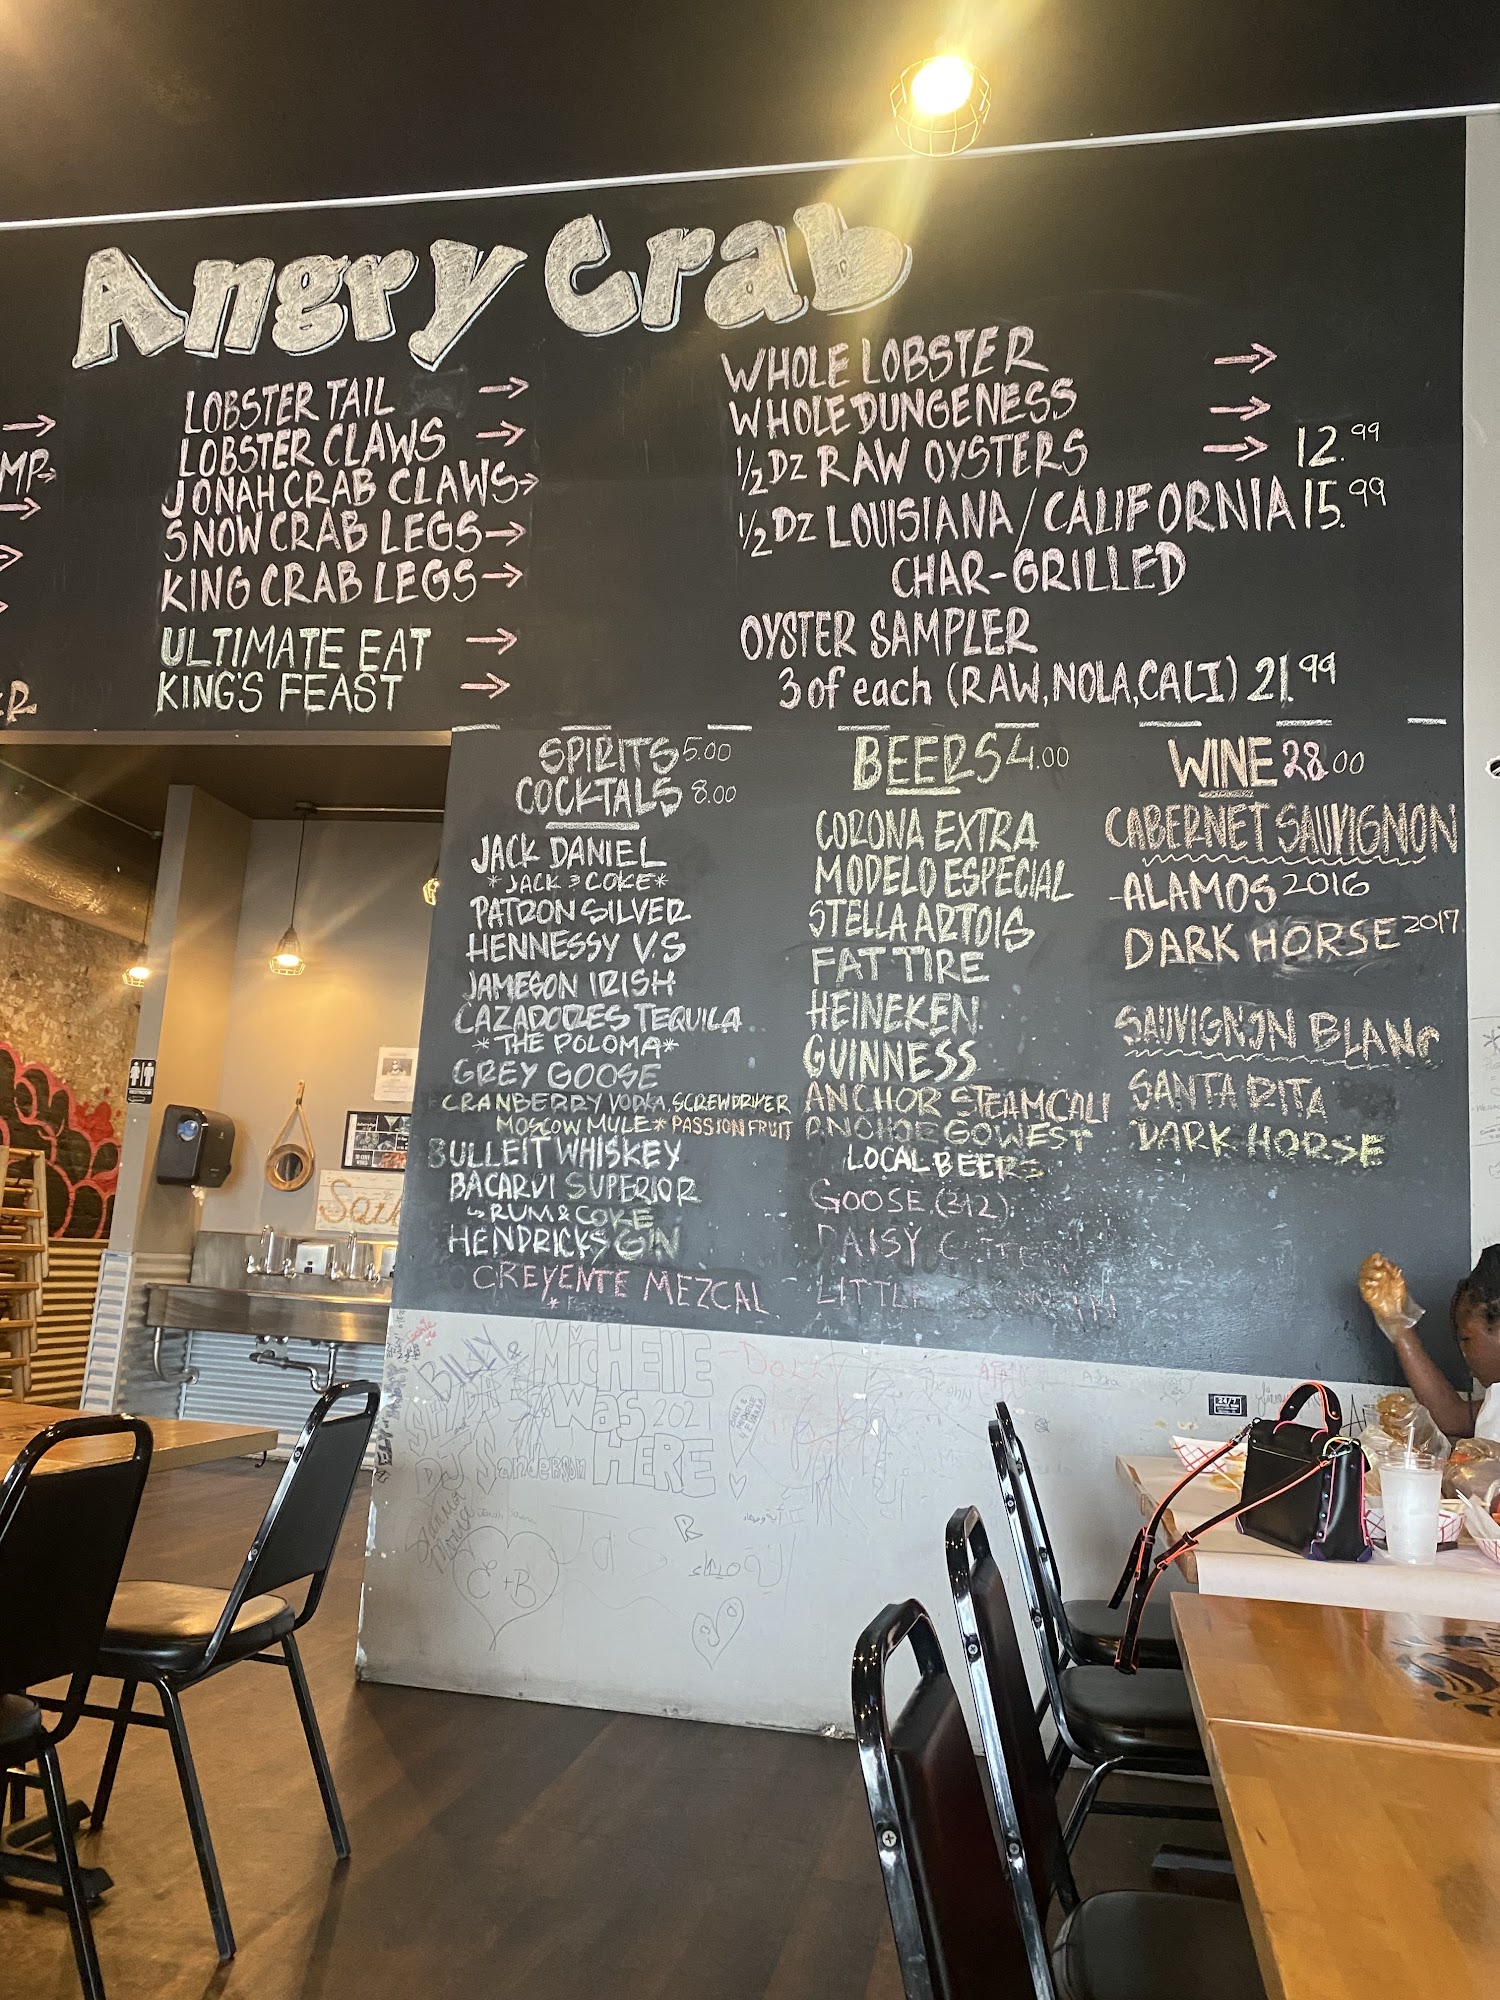 Angry Crab
LOBSTER TAIL →
LOBSTER CLAWS →
JONAH CRAB CLAWS →
SNOW CRAB LEGS →
KING CRAB LEGS →
ULTIMATE EAT →
KING'S FEAST →
WHOLE LOBSTER →
WHOLE DUNGENESS →
1/2 DZ RAW OYSTERS → 12.99
1/2 DZ LOUISIANA/CALIFORNIA 15.99
CHAR-GRILLED
OYSTER SAMPLER
3 of each (RAW, NOLA, CALI) 21.99
SPIRITS 5.00
COCKTALS 8.00
JACK DANIEL
*JACK & COKE*
PATRON SILVER
HENNESSY V.S
JAMESON IRISH
CAZADORES TEQUILA
*THE POLOMA*
GREY GOOSE
CRANBERRY VODKA, SCREWDRIVER
MOSCOW MULE * PASSION FRUIT
BULLEIT WHISKEY
BACARDI SUPERIOR
↳ RUM & COKE
HENDRICKS GIN
CREYENTE MEZCAL
BEERS 4.00
CORONA EXTRA
MODELO ESPECIAL
STELLA ARTOIS
FAT TIRE
HEINEKEN
GUINNESS
ANCHOR STEAM CALI
ANCHOR GOWEST
LOCAL BEERS
GOOSE (312)
DAISY
LITTLE
WINE 28.00
CABERNET SAUVIGNON
-ALAMOS 2016
DARK HORSE 2017
SAUVIGNON BLANC
SANTA RITA
DARK HORSE
BILLY &
MiCHEllE
was 2021
HERE
C + B
R
24/7